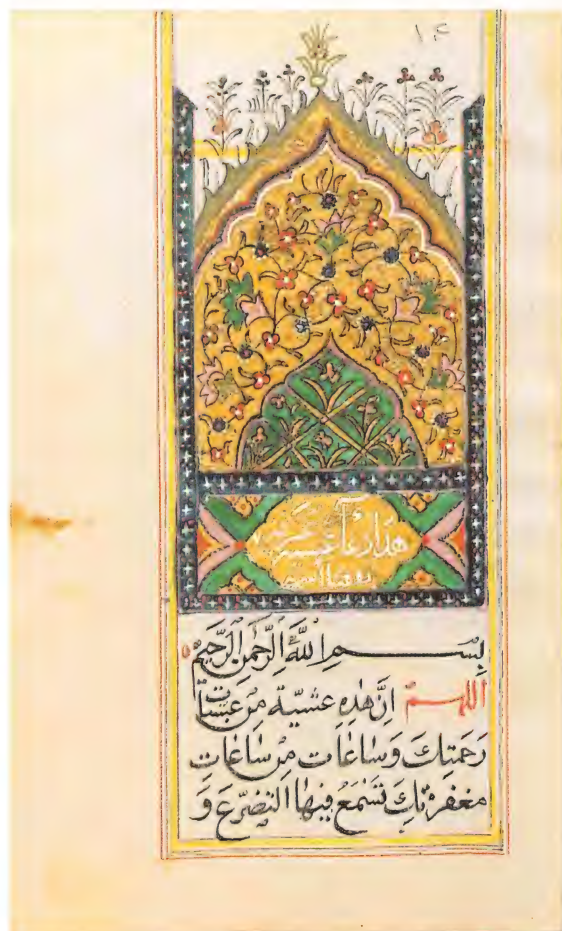 ١٤
هذا دعاء عشية
بِسْمِ اللهِ الرَّحْمٰنِ الرَّحِيْمِ
اللهم اِنَّ هٰذِهِ عشيّة مِنْ عَشِيّات
رَحمَتِكَ وَسٰاعَات مِنْ سٰاعٰاتِ
مغفرتِكَ تَسْمَعُ فيهٰا التضرّعَ وَ